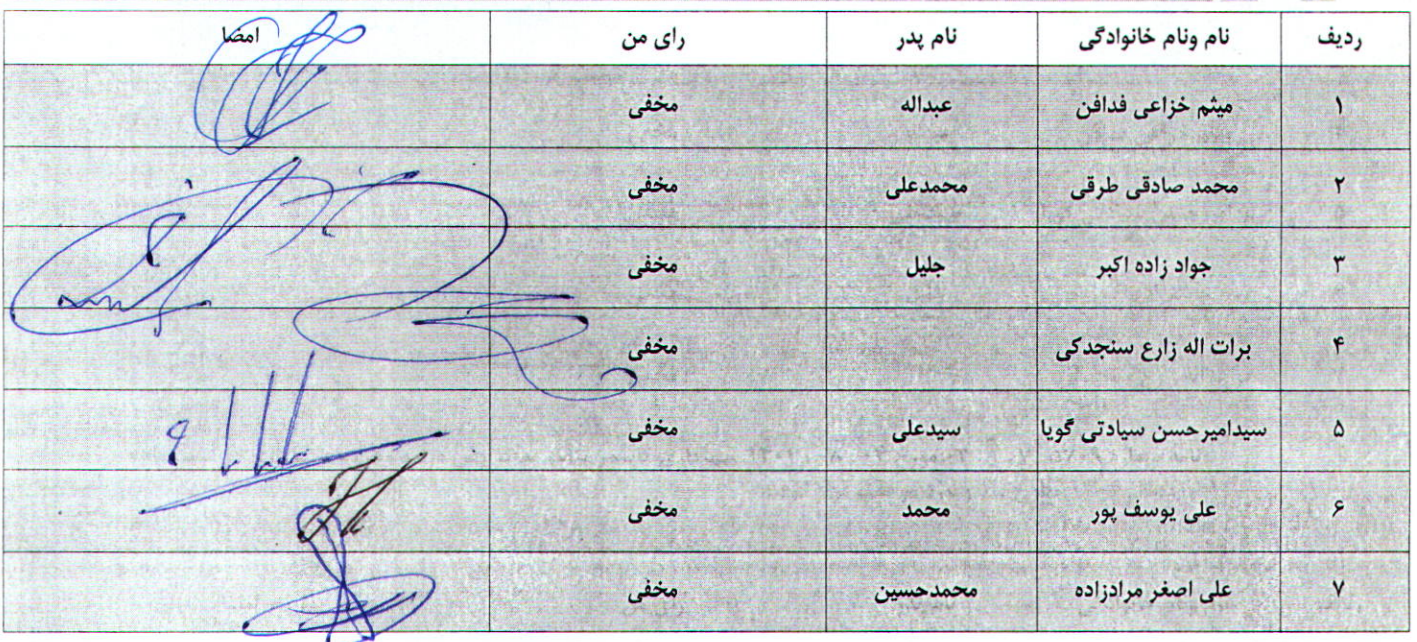 ردیف نام ونام خانوادگی نام پدر رای من امضا
۱ میثم خزاعی فدافن عبداله مخفی
۲ محمد صادقی طرقی محمدعلی مخفی
۳ جواد زاده اکبر جلیل مخفی
۴ برات اله زارع سنجدکی مخفی
۵ سیدامیرحسن سیادتی گویا سیدعلی مخفی
۶ علی یوسف پور محمد مخفی
۷ علی اصغر مرادزاده محمدحسین مخفی